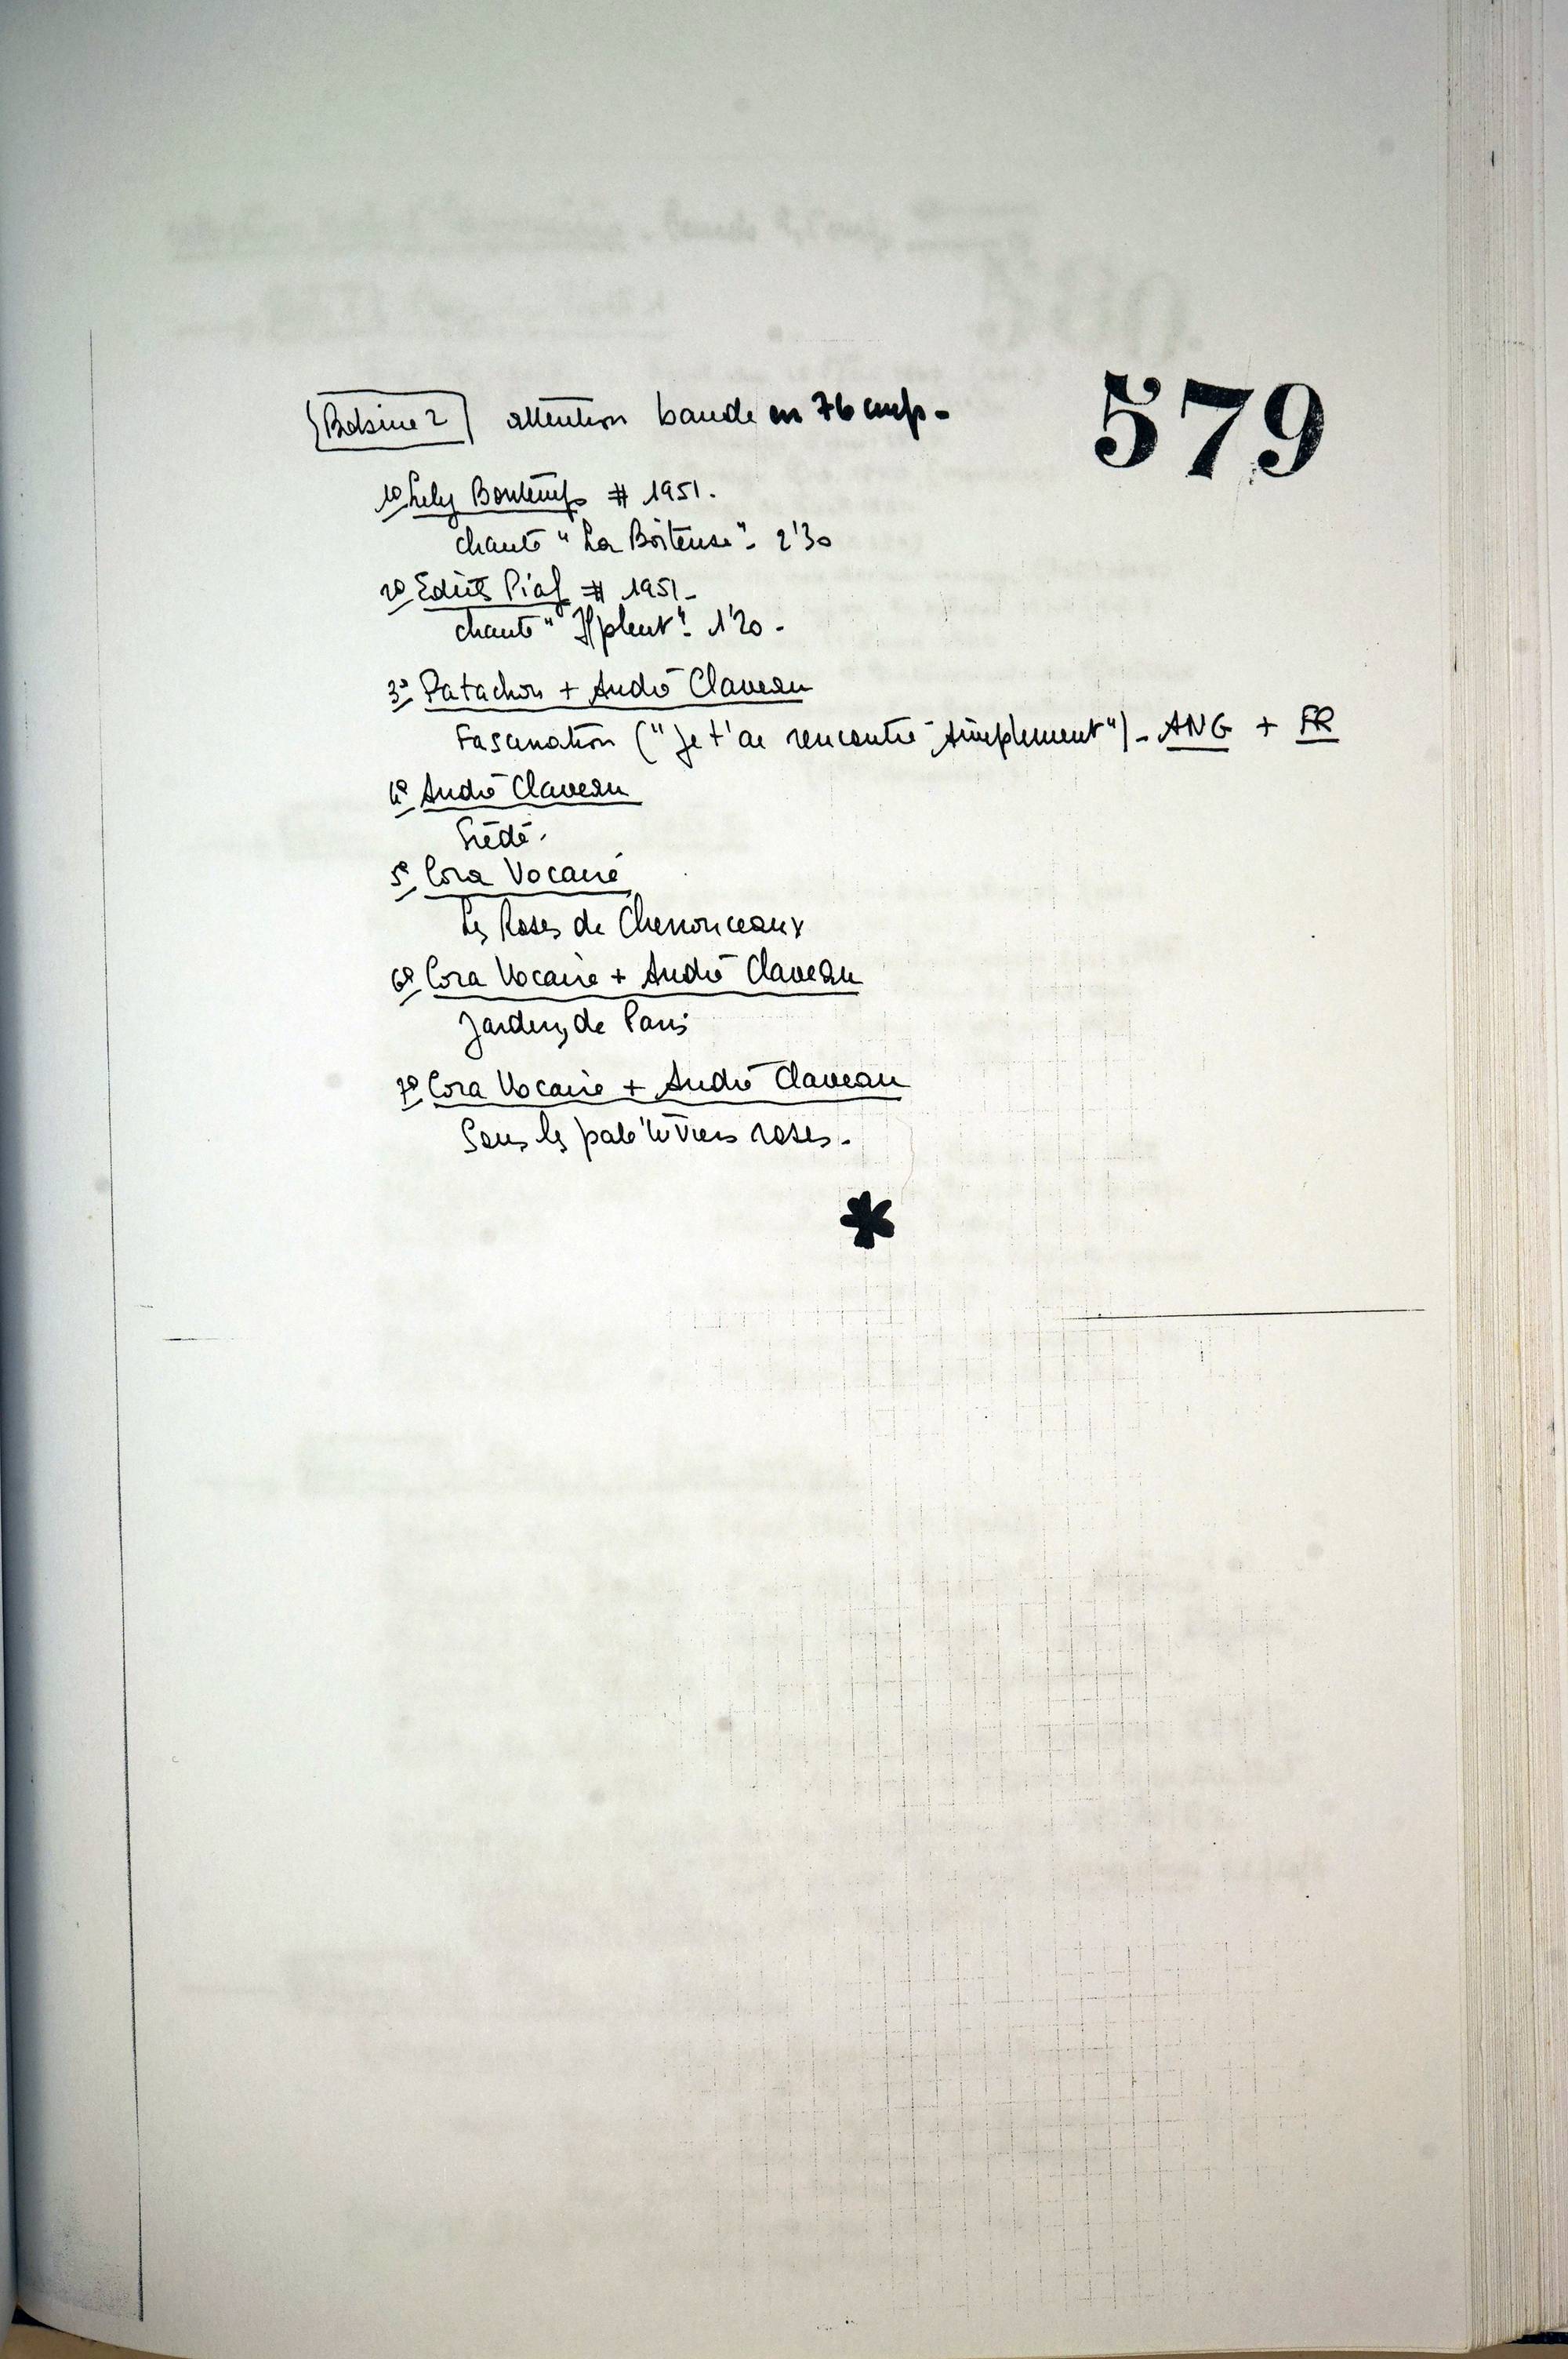 Bobine 2 attention bande en 76 cm/s -
579
1° Lily Bontemps # 1951.
chante "La Boiteuse". 2'30
2° Edith Piaf # 1951-
chante "Il pleut". 1'20 -
3° Patachou + André Claveau
Fascination ("Je t'ai rencontré simplement") - ANG + FR
4° André Claveau
5° Cora Vocaire
Les Roses de Chenonceaux
6° Cora Vocaire + André Claveau
Jardins de Paris
7° Cora Vocaire + André Claveau
Sous les palétuviers roses.
*